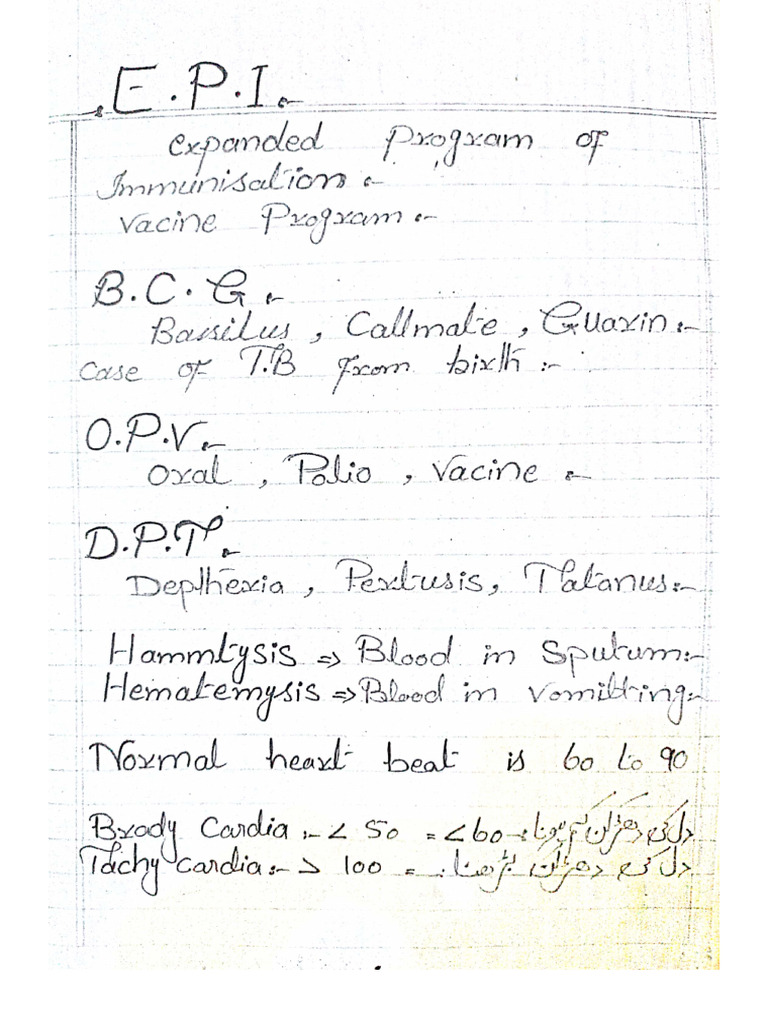 E.P.I.-
expanded program of
Immunisation :-
Vacine Program :-
B.C.G :-
Bassilus, Callmate, Guarin :-
Case of T.B from birth :-
O.P.V :-
Oxal, Polio, Vacine :-
D.P.T :-
Deptheria, Pertusis, Thatanus :-
Hammtysis => Blood in Sputum :-
Hematemysis => Blood in vomitting :-
Normal heart beat is 60 to 90
Brady Cardia :- < 50 = <60 :- دل کی دھڑکن کم ہونا
Tachy cardia :- > 100 = دل کی دھڑکن بڑھنا